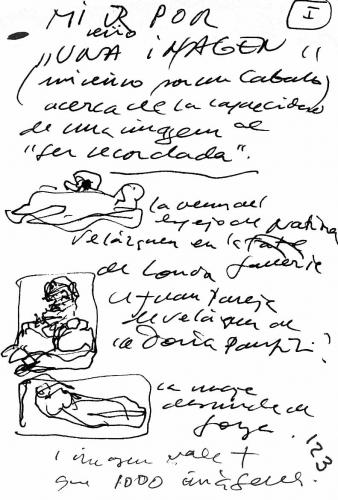 MI R POR
eino
I
"UNA IMAGEN"
(mi reino por un caballo)
acerca de la capacidad
de una imagen de
"ser recordada".
la venus del
espejo de
Velázquez en la National
Gallerie
de Londa
el Juan Pareja
de Velázquez de
la Doria Pamphili?
la maja
desnuda de
Goya.
1 imagen vale +
que 1000 imágenes.
123